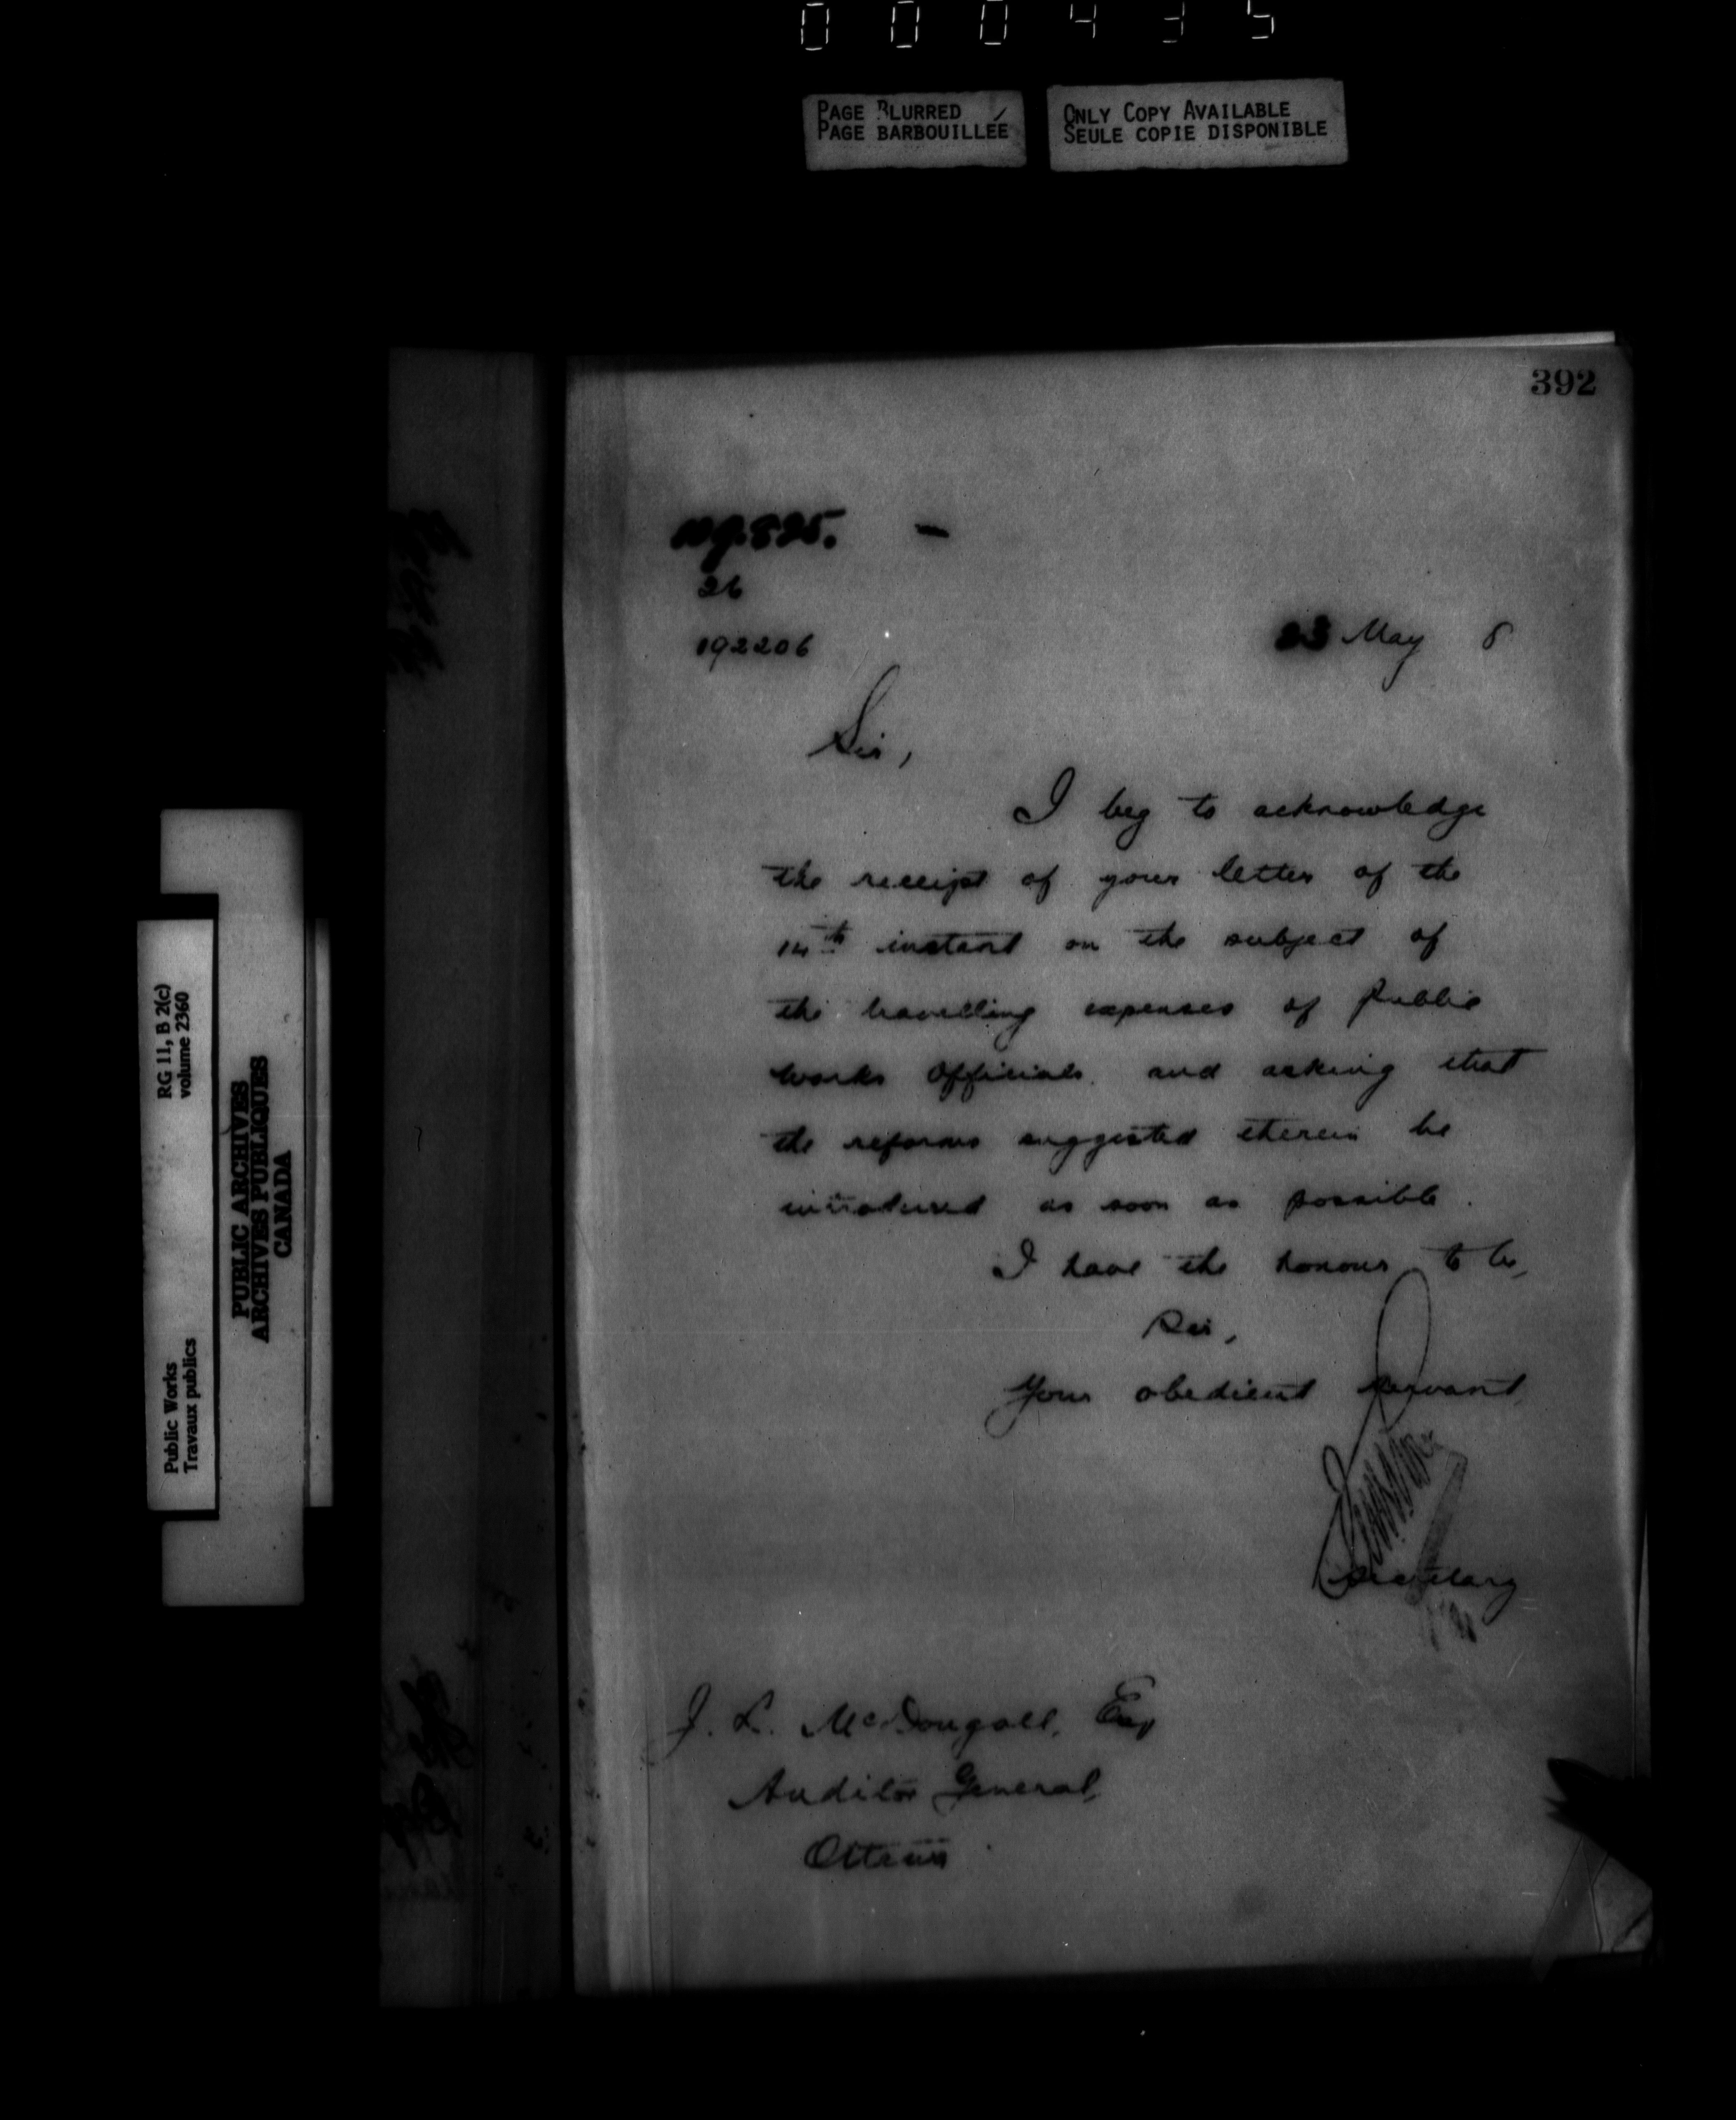 000435
PAGE BLURRED
PAGE BARBOUILLÉE
ONLY COPY AVAILABLE
SEULE COPIE DISPONIBLE
392
26
192206
23 May 8
Sir,
I beg to acknowledge
the receipt of your letter of the
14th instant on the subject of
the travelling expenses of Public
Works Officials. and asking that
the reforms suggested therein be
introduced as soon as possible.
I have the honour to be,
Sir,
Your obedient servant,
Secretary
J. L. McDougall, Esq
Auditor General,
Ottawa
RG 11, B 2(c)
volume 2360
Public Works
Travaux publics
PUBLIC ARCHIVES
ARCHIVES PUBLIQUES
CANADA